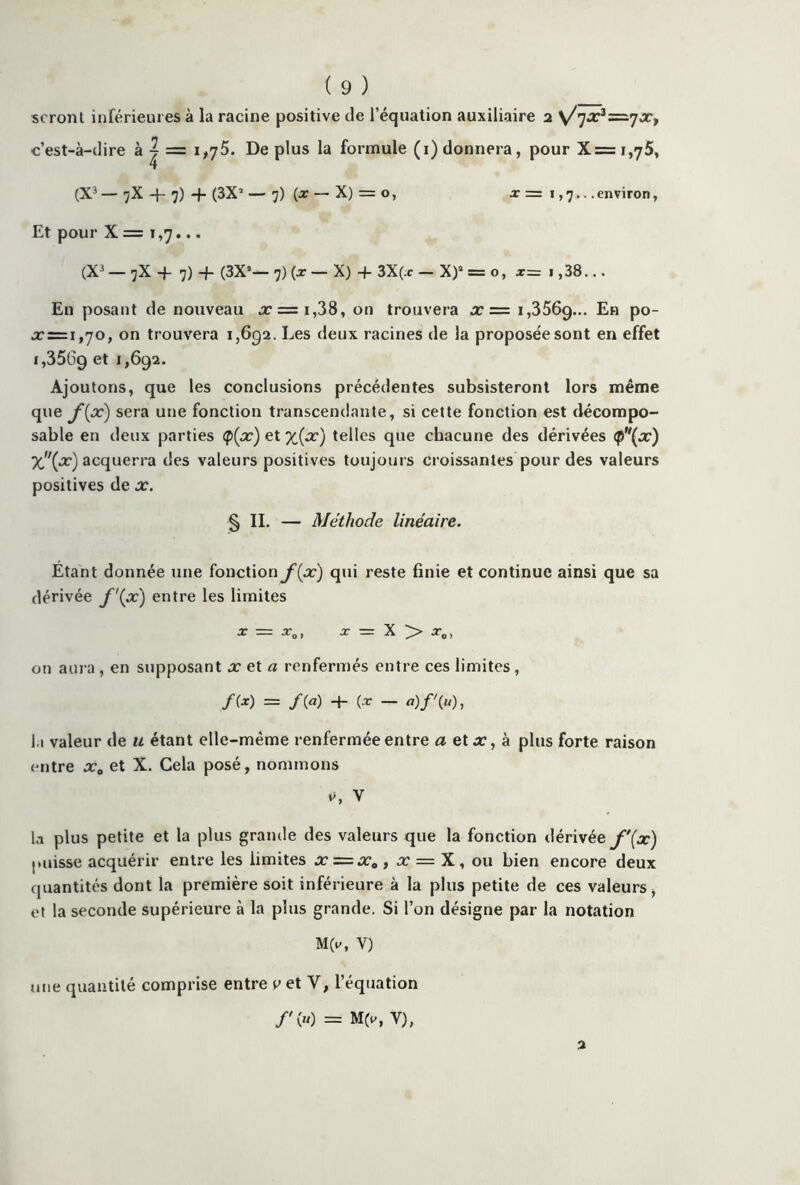 ( 9 )
seront inférieures à la racine positive de l'équation auxiliaire 2 √7x³=7x,
c'est-à-dire à 7/4 = 1,75. De plus la formule (1) donnera, pour X=1,75,
(X³ — 7X + 7) + (3X² — 7) (x — X) = 0, x = 1,7...environ,
Et pour X = 1,7...
(X³ — 7X + 7) + (3X²— 7) (x — X) + 3X(x — X)² = 0, x= 1,38...
En posant de nouveau x = 1,38, on trouvera x = 1,3569... En po-
x=1,70, on trouvera 1,692. Les deux racines de la proposée sont en effet
1,3569 et 1,692.
Ajoutons, que les conclusions précédentes subsisteront lors même
que f(x) sera une fonction transcendante, si cette fonction est décompo-
sable en deux parties φ(x) et χ(x) telles que chacune des dérivées φ"(x)
χ"(x) acquerra des valeurs positives toujours croissantes pour des valeurs
positives de x.
§ II. — Méthode linéaire.
Étant donnée une fonction f(x) qui reste finie et continue ainsi que sa
dérivée f'(x) entre les limites
x = x₀, x = X > x₀,
on aura, en supposant x et a renfermés entre ces limites,
f(x) = f(a) + (x — a)f'(u),
la valeur de u étant elle-même renfermée entre a et x, à plus forte raison
entre x₀ et X. Cela posé, nommons
v, V
la plus petite et la plus grande des valeurs que la fonction dérivée f'(x)
puisse acquérir entre les limites x = x₀, x = X, ou bien encore deux
quantités dont la première soit inférieure à la plus petite de ces valeurs,
et la seconde supérieure à la plus grande. Si l'on désigne par la notation
M(v, V)
une quantité comprise entre v et V, l'équation
f'(u) = M(v, V),
2